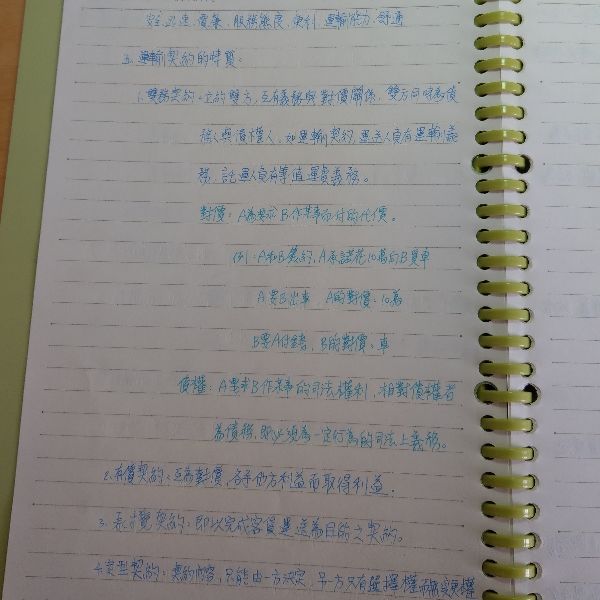 安全、迅速、價廉、服務態度、便利、運輸能力、舒適
五、運輸契約的特質:
1.雙務契約:立約雙方,互有義務與對價關係,雙方同時為債
務人與債權人,如運輸契約,運送人負有運輸義
務,託運人負有等值運費義務。
對價:A為要求B作某事而付的代價。
例:A和B簽約,A承諾花10萬向B買車
A要B出車 A的對價:10萬
B要A付錢,B的對價:車
債權:A要求B作某事的司法權利,相對債權者
為債務,即必須為一定行為的司法上義務。
2.有償契約:互為對價,各予他方利益而取得利益.
3.承攬契約:即以完成客貨運送為目的之契約。
4.定型契約:契約內容,只能由一方決定,另一方只有選擇權而無變更權